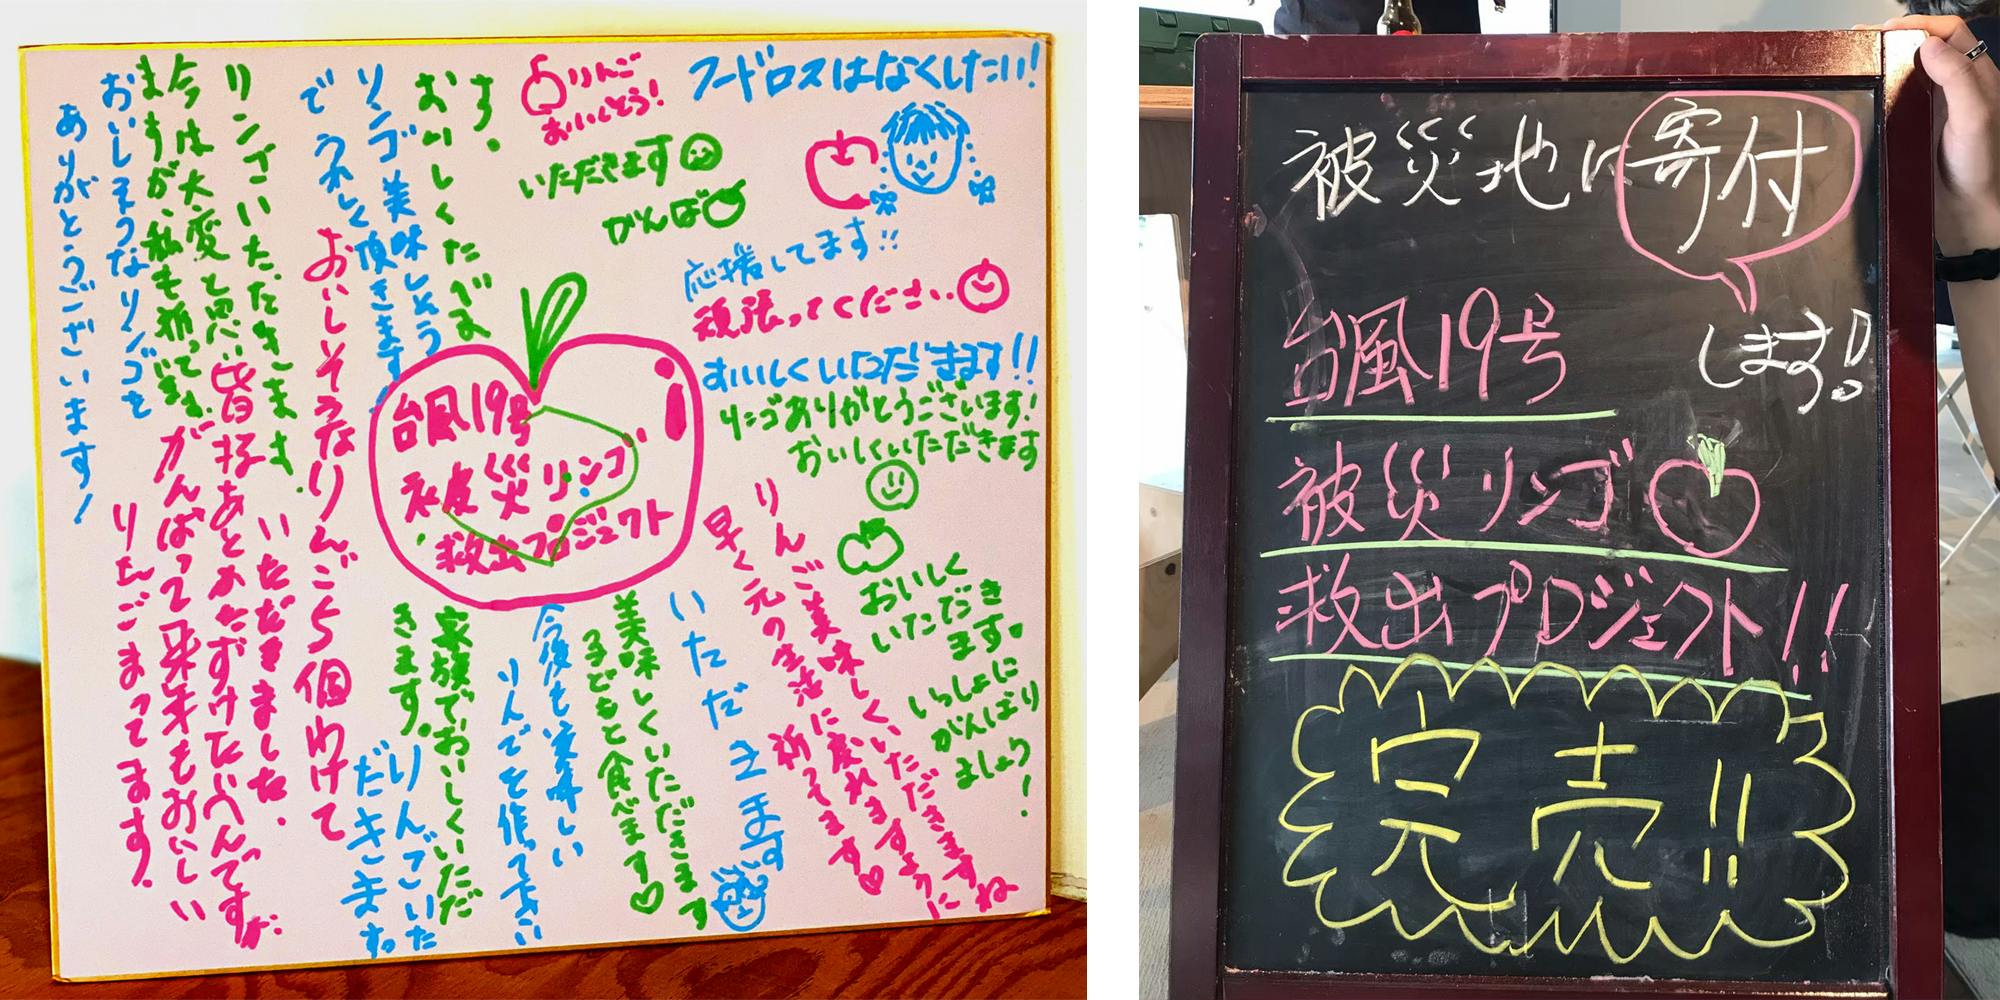 フードロスはなくしたい!
りんご
おいしそう!
いただきます
がんば
応援してます!!
頑張ってください
おいしくいただきます!!
リンゴありがとうございます!
おいしくいただきます
おいしく
いただき
ます。
いっしょに
がんばり
ましょう!
りんご美味しくいただきますね
早く元の生活に戻れますように
祈ってます♡
いただきます
美味しくいただきます
子どもと食べます♡
今後も美味しい
りんごを作って下さい
家族でおいしくいただ
きます。
りんごいた
だきます。
おいしくたべま
す。
リンゴ美味しそう
で うれしく頂きます
おいしそうなりんご5個わけて
いただきました。
リンゴいただきます。
今は大変と思い
ますが、私も祈ってます。
皆様あとかたずけたいへんですが、
がんばって来年もおいしい
りんごまってます。
おいしそうなリンゴを
ありがとうございます!
台風19号
被災リンゴ
救出プロジェクト
被災地に寄付
します!
台風19号
被災リンゴ
救出プロジェクト!!
完売!!